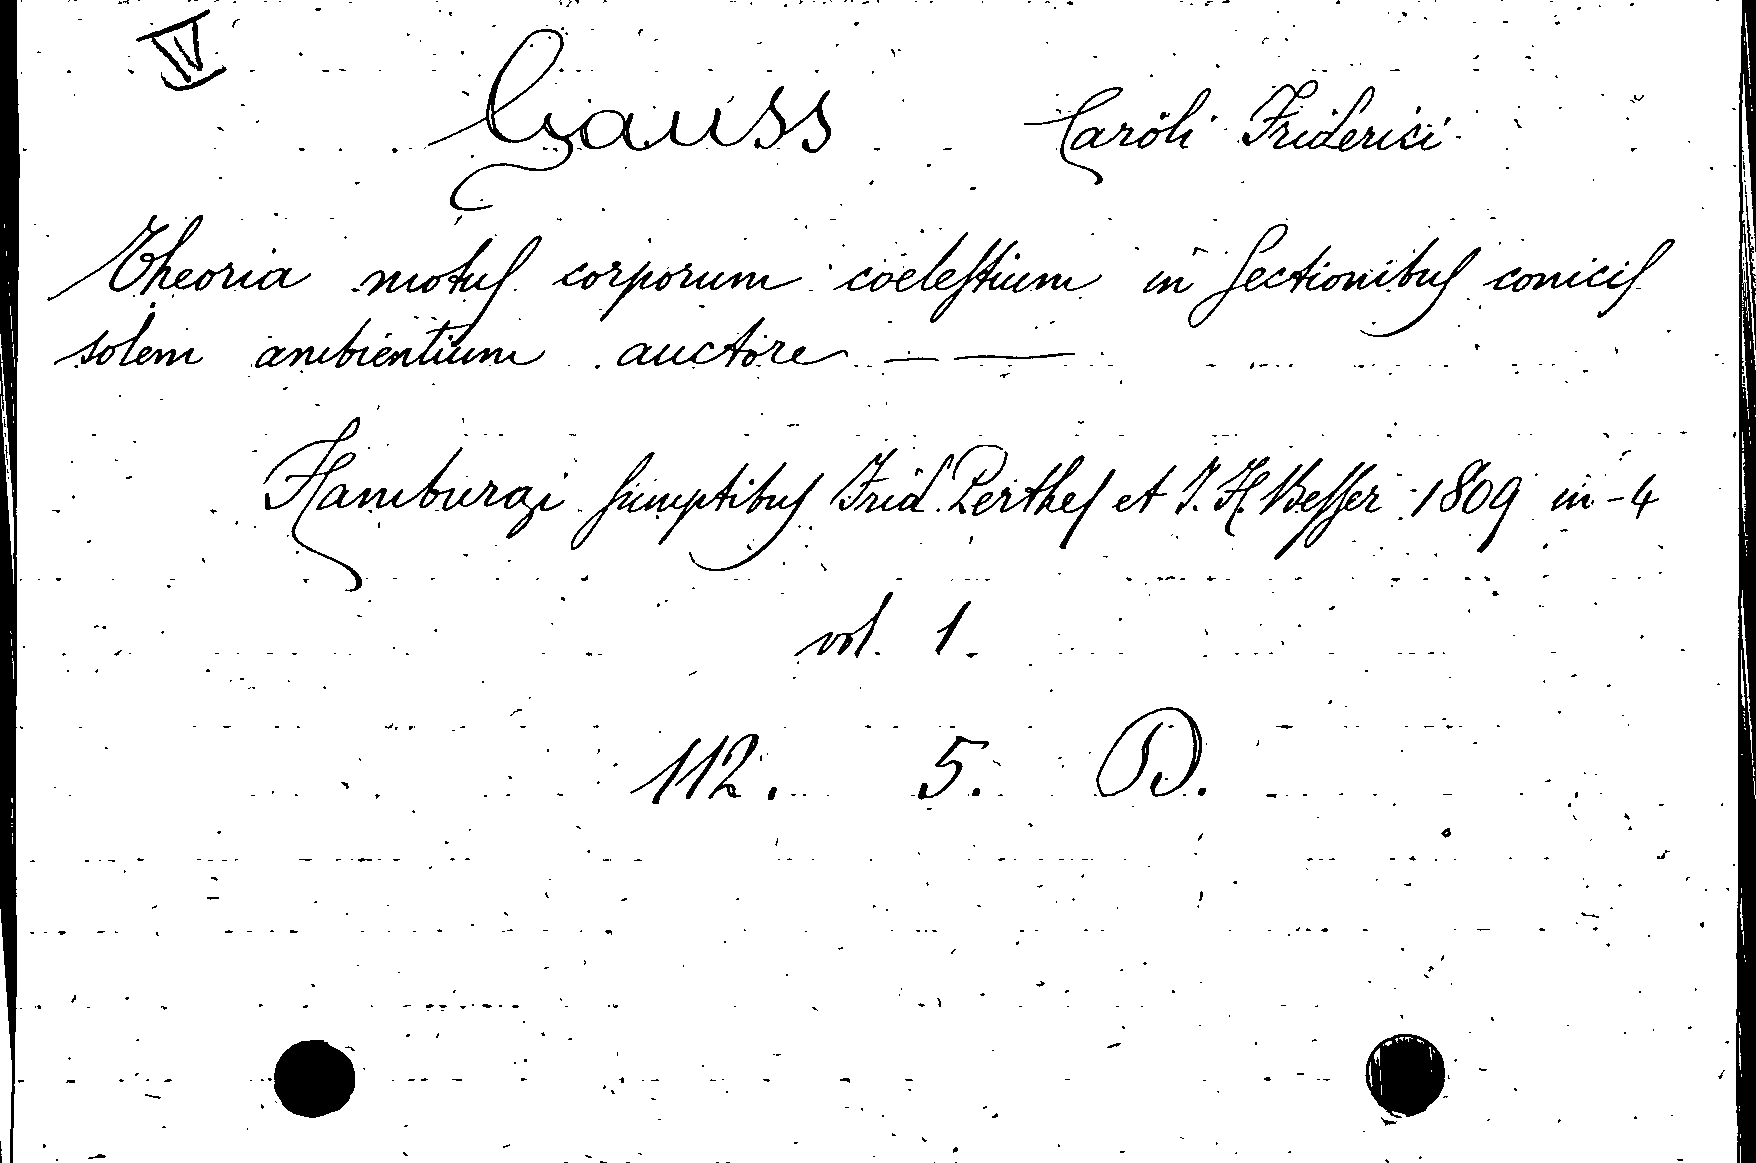 IV
Gauss Caroli Friderici
Theoria motuſ corporum coeleſtium in ſectionibuſ coniciſ
solem ambientium auctore — —
Hamburgi ſumptibuſ Frid. Pertheſ et I. H. Beſſer 1809 in-4
vol. 1.
112. 5. D.